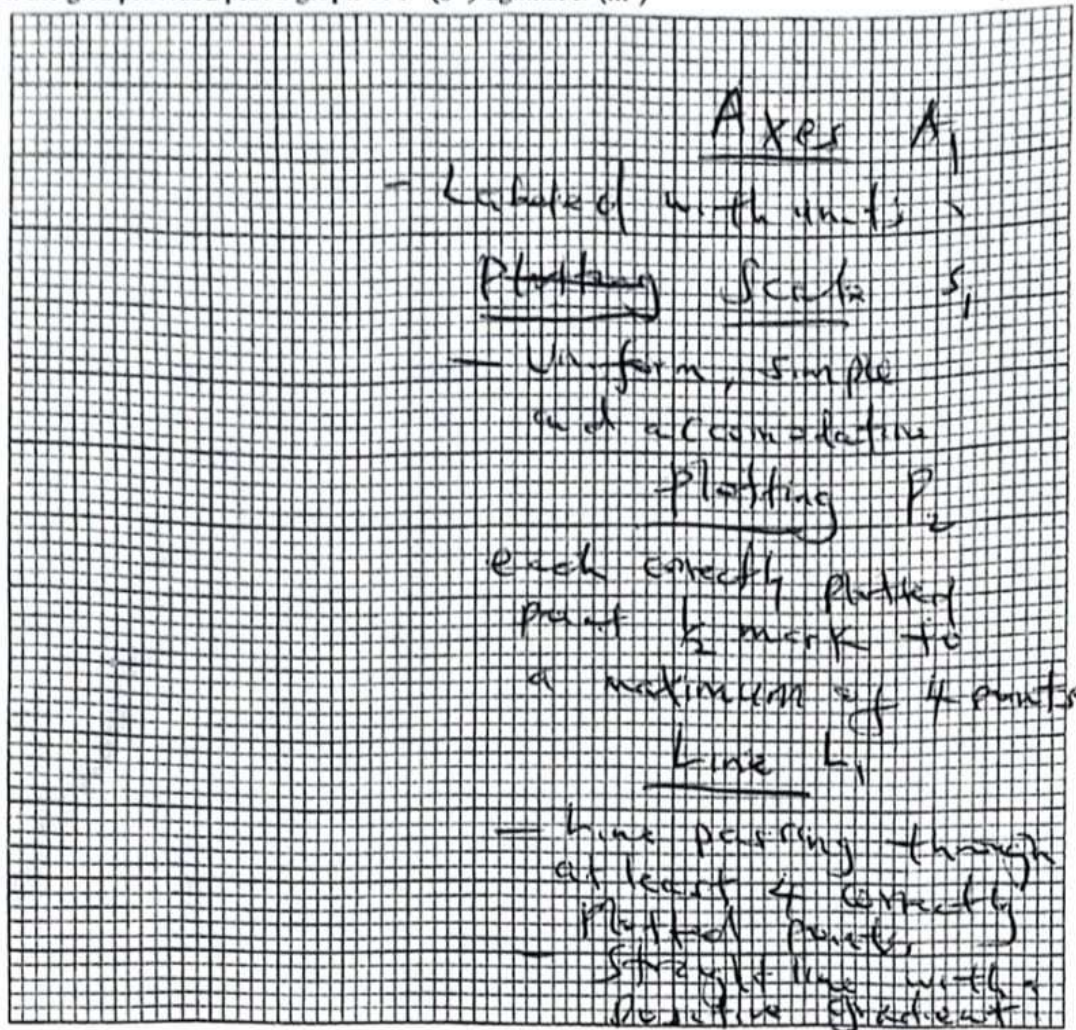 Axes A1
- Labeled with units
Plotting Scale S1
- Uniform, simple
and accomodative
Plotting P2
each correctly plotted
point ½ mark to
a maximum of 4 points
Line L1
- Line passing through
at least 4 correctly
plotted points,
- Straight line with a
positive gradient